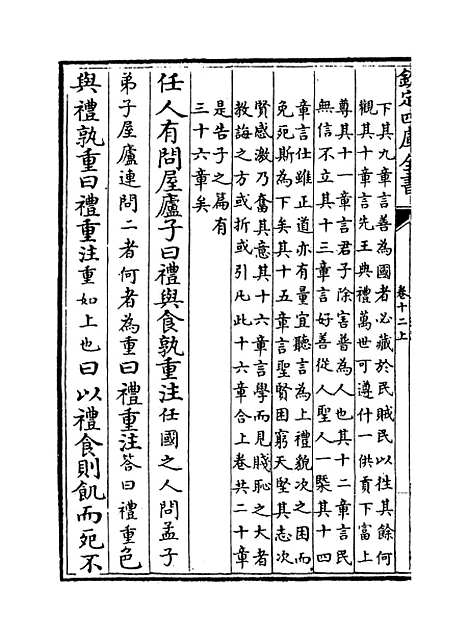 欽定四庫全書
卷十二上
下其九章言善為國者必藏於民賊民以往其餘何
觀其十章言先王典禮萬世可遵什一供貢下富上
尊其十一章言君子除害普為人也其十二章言民
無信不立其十三章言好善從人聖人一槩其十四
章言仕雖正道亦有量宜聽言為上禮貌次之困而
免死斯為下矣其十五章言聖賢困窮天堅其志次
賢感激乃奮其意其十六章言學而見賤恥之大者
教誨之方或折或引凡此十六章合上卷共二十章
是告子之篇有
三十六章矣
任人有問屋廬子曰禮與食孰重注任國之人問孟子
弟子屋廬連問二者何者為重曰禮重注答曰禮重色
與禮孰重曰禮重注重如上也曰以禮食則飢而死不